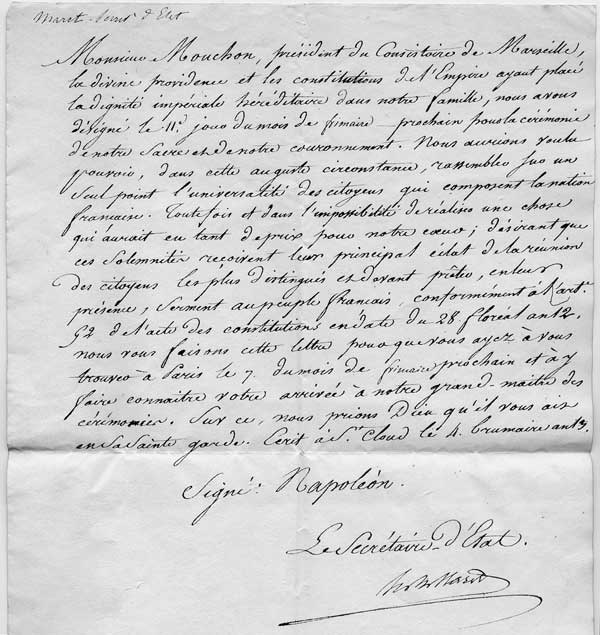 Maret - Secret d'Etat
Monsieur Mouchon, président du Consistoire de Marseille,
la divine providence et les constitutions de l'Empire ayant placé
la dignité impériale héréditaire dans notre famille, nous avons
désigné le 11e. jour du mois de frimaire prochain pour la cérémonie
de notre Sacre et de notre couronnement. Nous aurions voulu
pouvoir, dans cette auguste circonstance, rassembler sur un
Seul point l'universalité des citoyens qui composent la nation
française. Toutefois et dans l'impossibilité de réaliser une chose
qui aurait eu tant de prix pour notre cœur; désirant que
ces Solemnités reçoivent leur principal éclat de la réunion
des citoyens les plus distingués et devant prêter, en leur
présence, Serment au peuple français, conformément à l'arte.
52 de l'acte des constitutions en date du 28 floréal an 12.
nous vous faisons cette lettre pour que vous ayez à vous
trouver à Paris le 7. du mois de frimaire prochain et à y
faire connaitre votre arrivée à notre grand-maitre des
cérémonies. Sur ce, nous prions Dieu qu'il vous ait
en Sa Sainte garde. Ecrit à St. Cloud le 4. brumaire an 13.
Signé: Napoléon.
Le Secrétaire d'Etat.
Maret